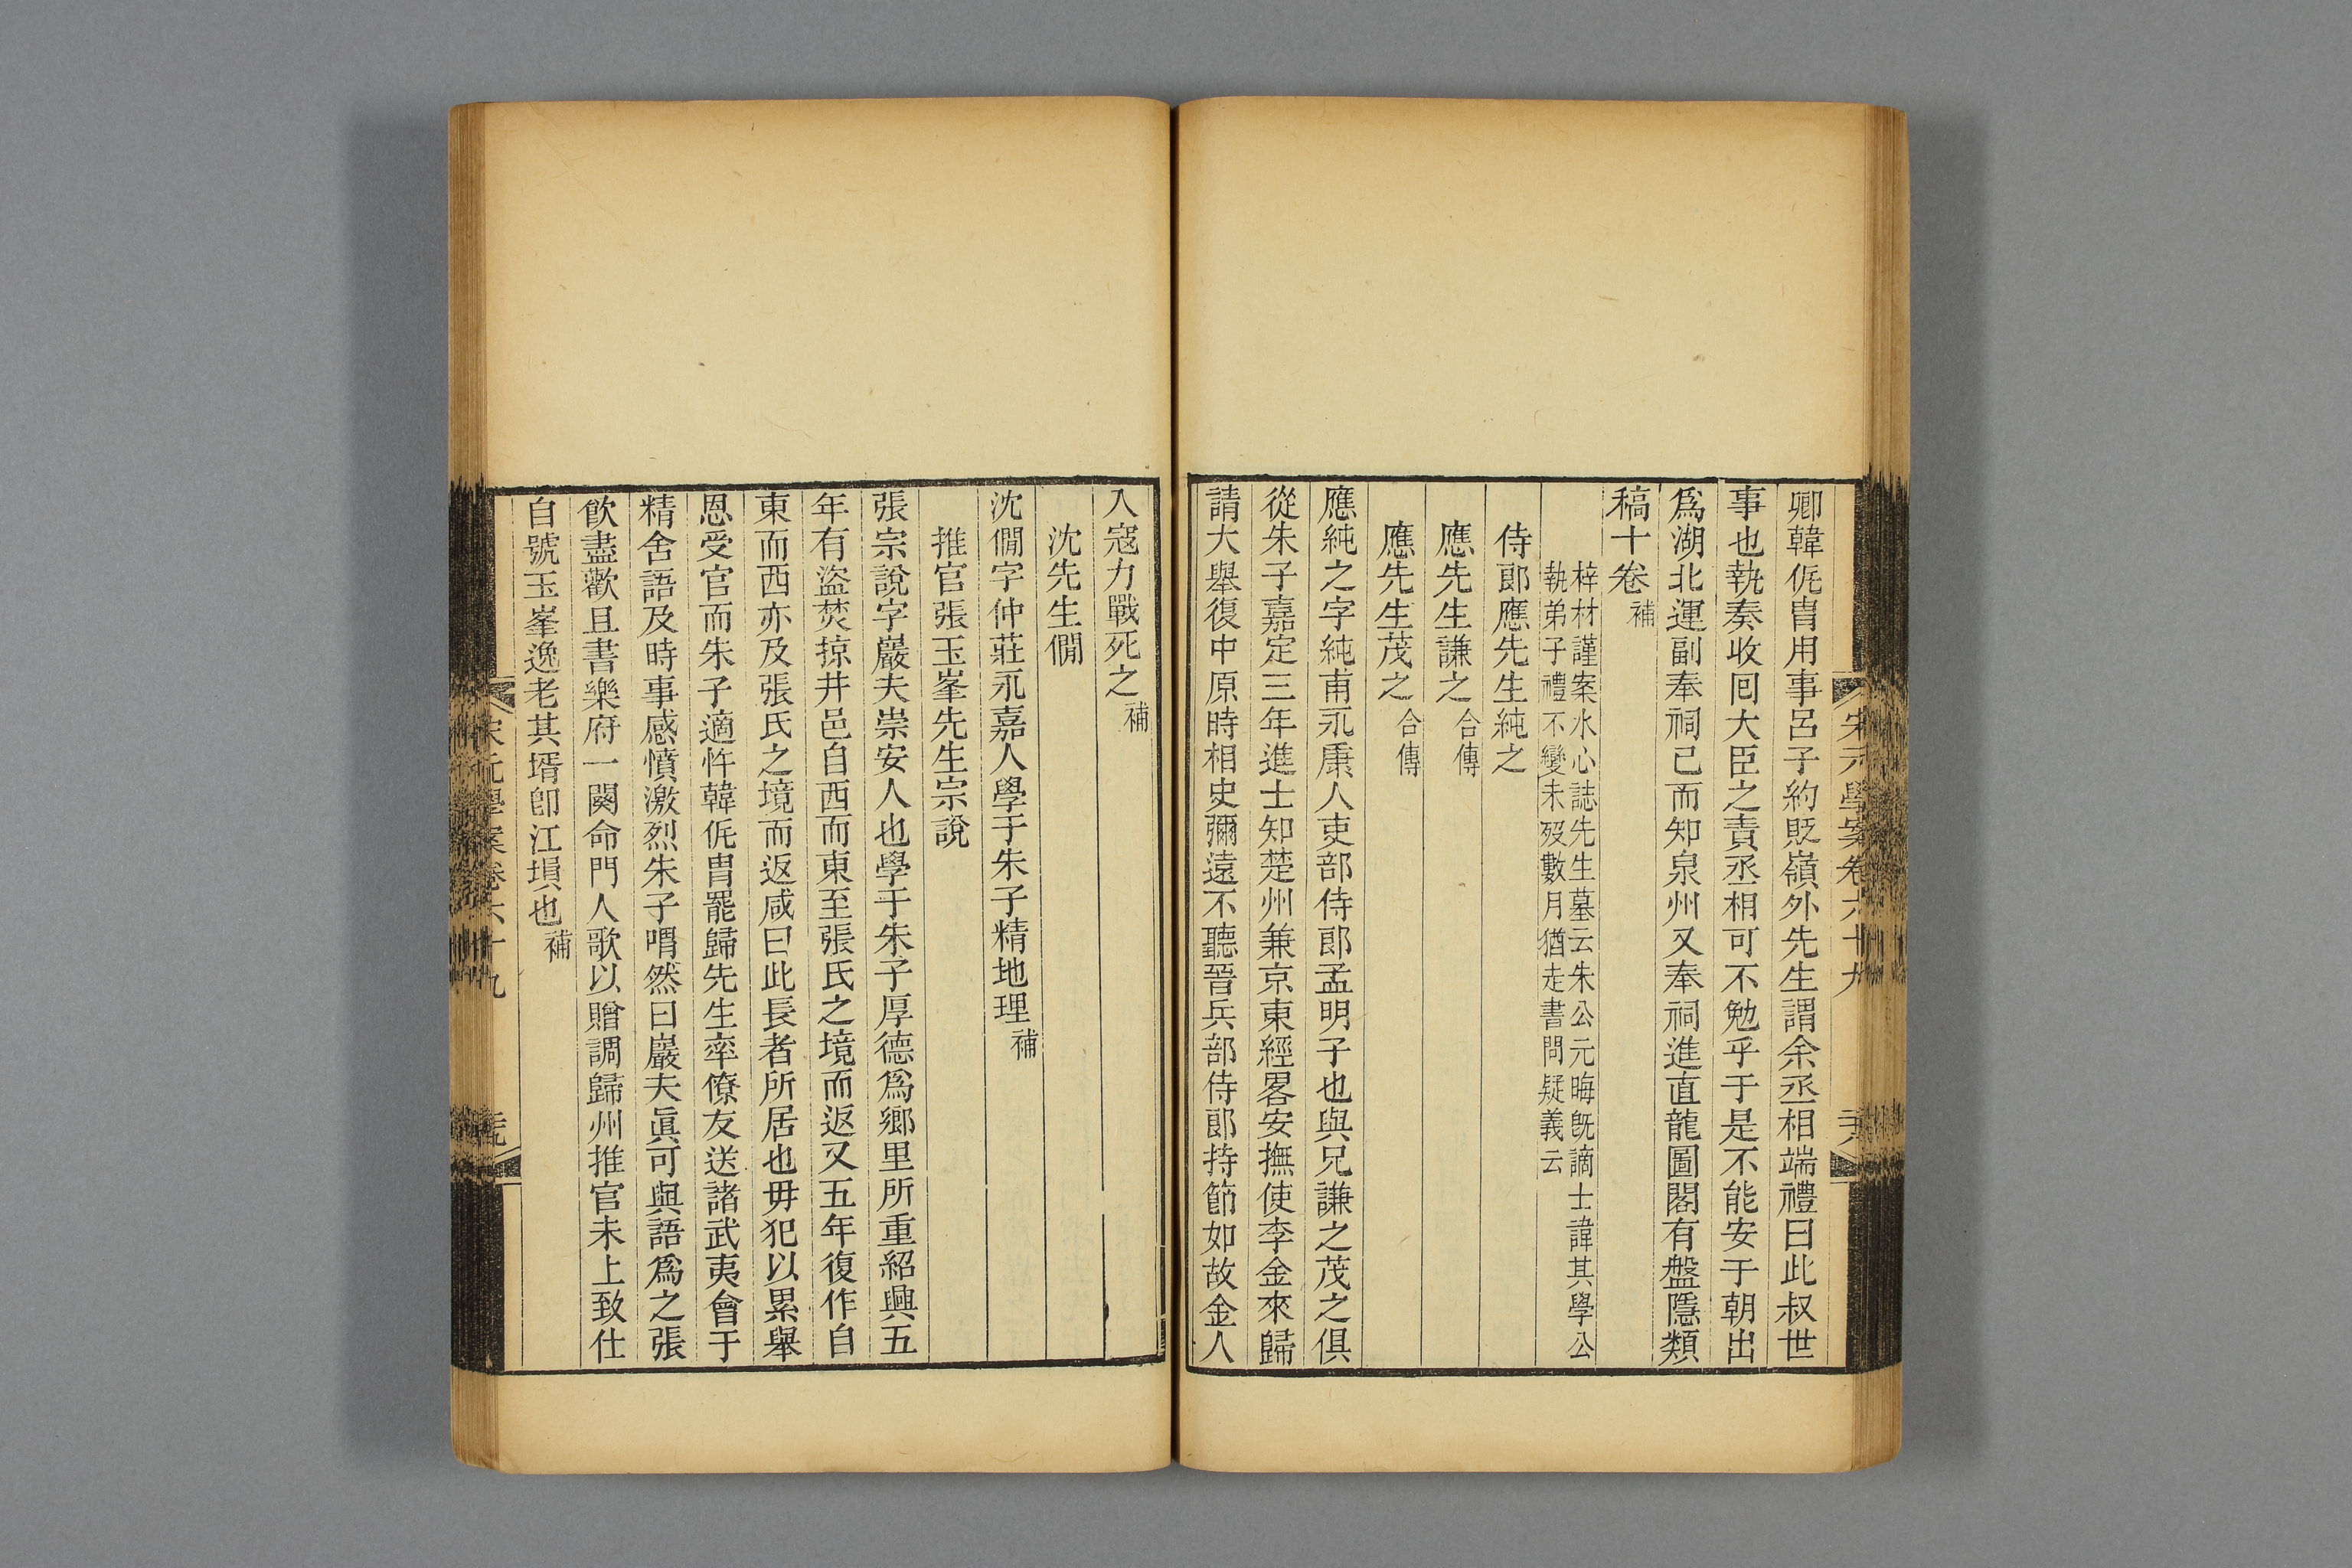 卿韓侂胄用事呂子約貶嶺外先生謂余丞相端禮曰此叔世
事也執奏收回大臣之責丞相可不勉乎于是不能安于朝出
爲湖北運副奉祠已而知泉州又奉祠進直龍圖閣有盤隱類
稿十卷補
梓材謹案水心誌先生墓云朱公元晦旣謫士諱其學公
執弟子禮不變未歿數月猶走書問疑義云
侍郎應先生純之
應先生謙之合傳
應先生茂之合傳
應純之字純甫永康人吏部侍郎孟明子也與兄謙之茂之俱
從朱子嘉定三年進士知楚州兼京東經畧安撫使李全來歸
請大舉復中原時相史彌遠不聽晉兵部侍郎持節如故金人
入寇力戰死之補
沈先生僩
沈僩字仲莊永嘉人學于朱子精地理補
推官張玉峯先生宗說
張宗說字巖夫崇安人也學于朱子厚德爲鄉里所重紹興五
年有盜焚掠井邑自西而東至張氏之境而返又五年復作自
東而西亦及張氏之境而返咸曰此長者所居也毋犯以累舉
恩受官而朱子適忤韓侂胄罷歸先生率僚友送諸武夷會于
精舍語及時事感憤激烈朱子喟然曰巖夫眞可與語爲之張
飮盡歡且書樂府一闋命門人歌以贈調歸州推官未上致仕
自號玉峯逸老其壻卽江塤也補
宋元學案卷六十九